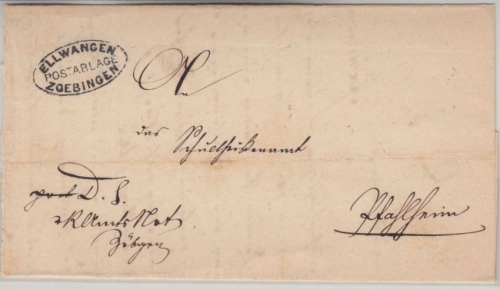 ELLWANGEN
POSTABLAGE
ZOEBINGEN
An
das Schultheißenamt
Pfahlheim
D. S.